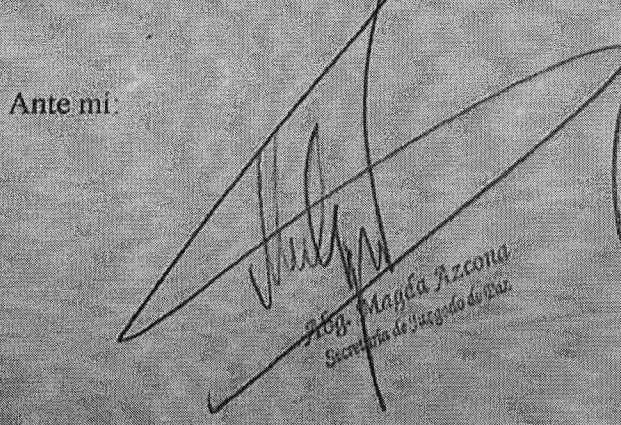 Ante mí:
Abg. Magda Azcona
Secretaria de Juzgado de Paz